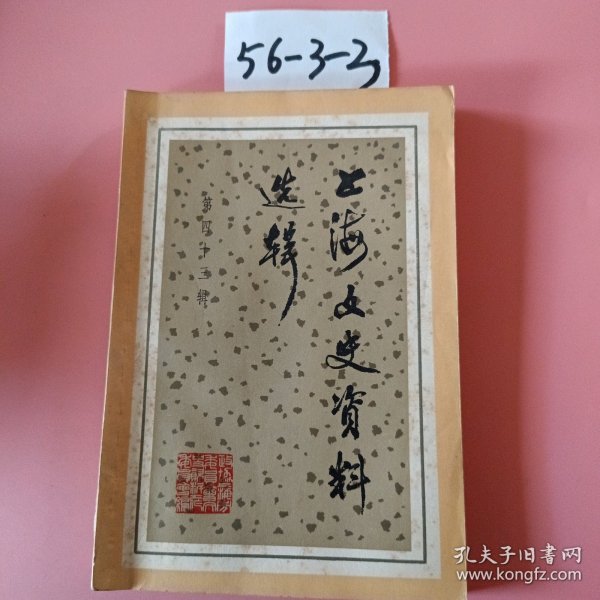 56-3-2
上海文史资料
选辑
第四十三辑
孔夫子旧书网
www.kongfz.com